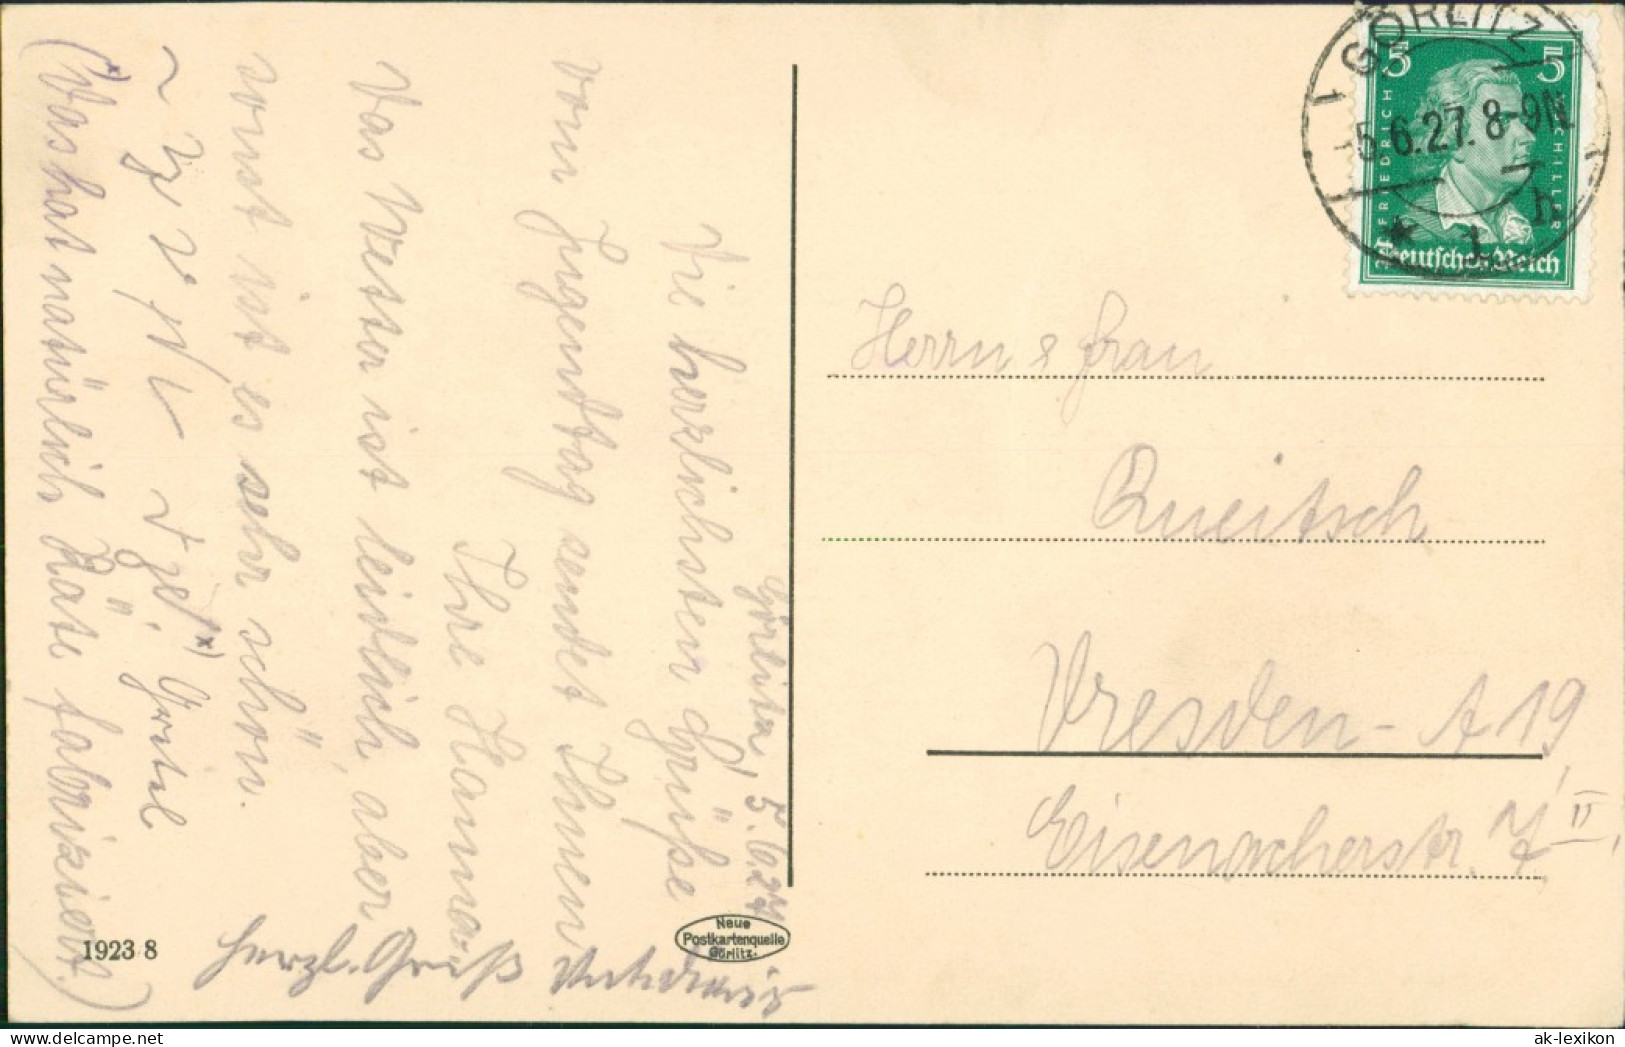 Görlitz, 5.6.27
Die herzlichsten Grüße
vom Jugendtag sendet Ihnen
Ihre Hanna.
Das Wetter ist leidlich, aber
sonst ist es sehr schön.
*) Gretel
(*) Das hat natürlich Käte fabriziert.)
Herzl. Gruß
1923 8
Neue
Postkartenquelle
Görlitz.
1 GÖRLITZ 1
-5.6.27. 8-9N
* 1 h
5 5
FRIEDRICH SCHILLER
Deutsches Reich
Herrn & Frau
Queitsch
Dresden-A 19
Eisenacherstr. II
ak-lexikon